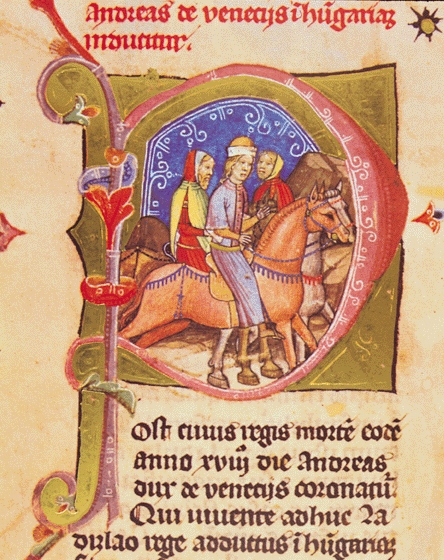 Andreas de venecijs ī hūgariaz
inducitur.
Post cuius regis mortē eodē
anno xviij die Andreas
dux de venecijs coronatur̄
Qui uiuente adhuc La
dizlao rege adductus ī hūgariaz